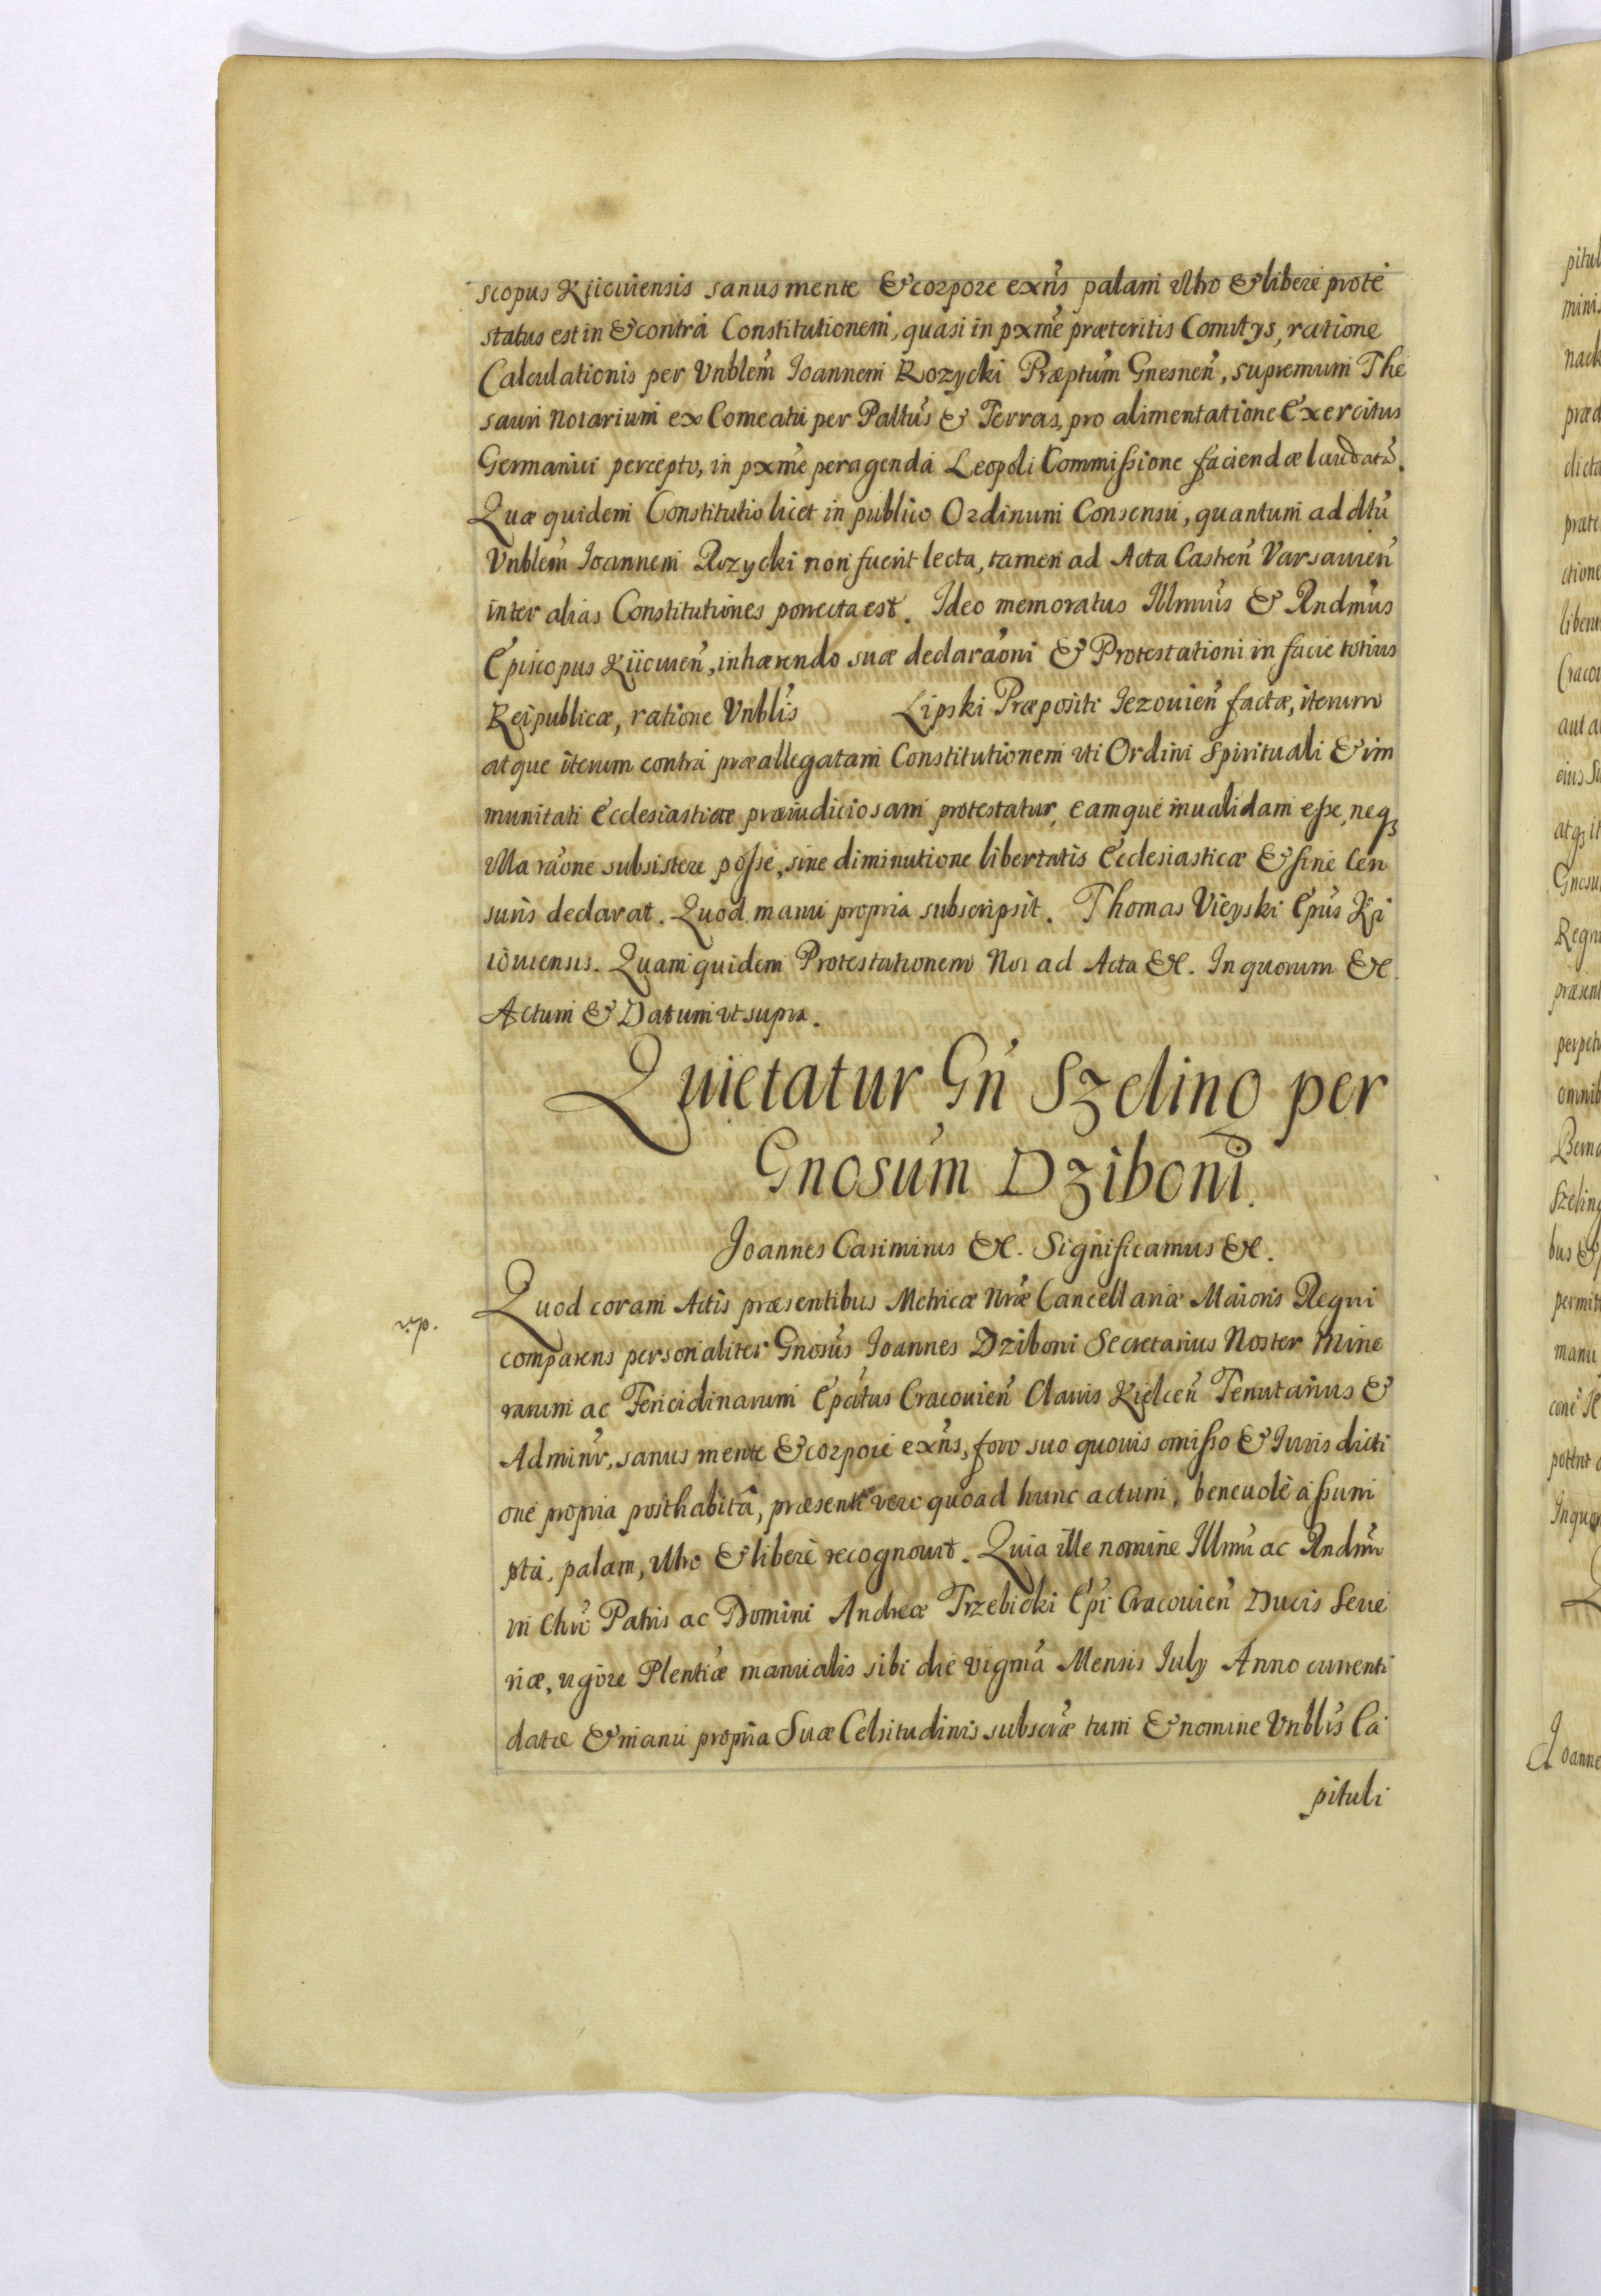 scopus Kiiouiensis sanus mente & corpore exñs palam vltro & liberè prote
status est in & contrà Constitutionem, quasi in pxmè præteritis Comitys, ratione
Calculationis per Vnblem̃ Ioannem Rozycki Præptum̃ Gnesnen̄, supremum The
sauri Notarium ex Comeatu per Pallus̃ & Terras, pro alimentatione Exercitus
Germanici percepto, in pxmè peragendà Leopoli Commissione faciendæ laudatã.
Quæ quidem Constitutio licet in publico Ordinum Consensu, quantum ad dtũ
Vnblem̃ Ioannem Rozycki non fuerit lecta, tamen ad Acta Castren̄ Varsauien̄
inter alias Constitutiones porrecta est. Ideo memoratus Illmus̃ & Rndmus̃
Episcopus Kiiouien̄, inhærendo suæ declaraõni & Protestationi in facie totius
Reipublicæ, ratione Vnblis̃ Lipski Præpositi Iezouien̄ factæ, iterum
atque iterum contrà præallegatam Constitutionem vti Ordini Spirituali & im
munitati Ecclesiasticæ præiudiciosam protestatur, eamque inualidam esse, neq3
vlla raõne subsistere posse, sine diminutione libertatis Ecclesiasticæ & sine Cen
suris declarat. Quod manu propria subscripsit. Thomas Vieyski Epus̃ Ki
iouiensis. Quam quidem Protestationem Nos ad Acta &c. In quorum &c.
Actum & Datum vt supra.
Quietatur Gn̄ Szeling per
Gnosum̃ Dziboni.
Joannes Casimirus &c. Significamus &c.
Quod coram Actis præsentibus Metricæ Nræ̃ Cancellariæ Maioris Regni
comparens personaliter Gnosus̃ Ioannes Dziboni Secretarius Noster Mine
rarum ac Fericidinarum Epatus̃ Cracouien̄ Clauis Kielcen̄ Tenutarius &
Adminr̃, sanus mente & corpore exñs, foro suo quouis omisso & Iurisdicti
one propria posthabitâ, præsenti vero quoad hunc actum, beneuolè assum
ptâ, palam, vltro & liberè recognouit. Quia ille nomine Illmi ac Rndmi
in Chro Patris ac Domini Andreæ Trzebicki Epi Cracouien̄ Ducis Seue
riæ, vigore Plentiæ manualis sibi die vigmã Mensis July Anno currenti
datæ & manu propria Suæ Celsitudinis subscræ tum & nomine Vnblis̃ Ca
pituli